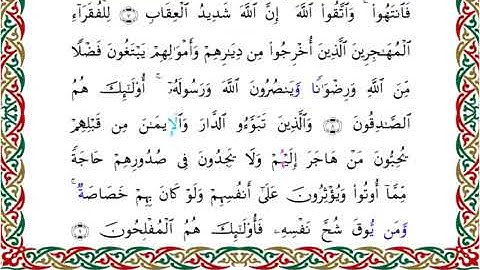 فَٱنتَهُوا۟ ۚ وَٱتَّقُوا۟ ٱللَّهَ ۖ إِنَّ ٱللَّهَ شَدِيدُ ٱلْعِقَابِ ۝٧ لِلْفُقَرَآءِ
ٱلْمُهَـٰجِرِينَ ٱلَّذِينَ أُخْرِجُوا۟ مِن دِيَـٰرِهِمْ وَأَمْوَٰلِهِمْ يَبْتَغُونَ فَضْلًا
مِّنَ ٱللَّهِ وَرِضْوَٰنًا وَيَنصُرُونَ ٱللَّهَ وَرَسُولَهُۥٓ ۚ أُو۟لَـٰٓئِكَ هُمُ
ٱلصَّـٰدِقُونَ ۝٨ وَٱلَّذِينَ تَبَوَّءُو ٱلدَّارَ وَٱلْإِيمَـٰنَ مِن قَبْلِهِمْ
يُحِبُّونَ مَنْ هَاجَرَ إِلَيْهِمْ وَلَا يَجِدُونَ فِى صُدُورِهِمْ حَاجَةً
مِّمَّآ أُوتُوا۟ وَيُؤْثِرُونَ عَلَىٰٓ أَنفُسِهِمْ وَلَوْ كَانَ بِهِمْ خَصَاصَةٌ ۚ
وَمَن يُوقَ شُحَّ نَفْسِهِۦ فَأُو۟لَـٰٓئِكَ هُمُ ٱلْمُفْلِحُونَ ۝٩